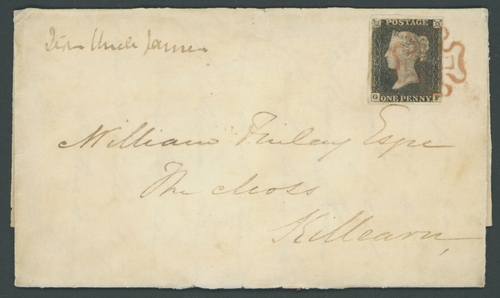 Uncle James
POSTAGE
ONE PENNY
William Finlay Esqe
The Moss
Killearn,